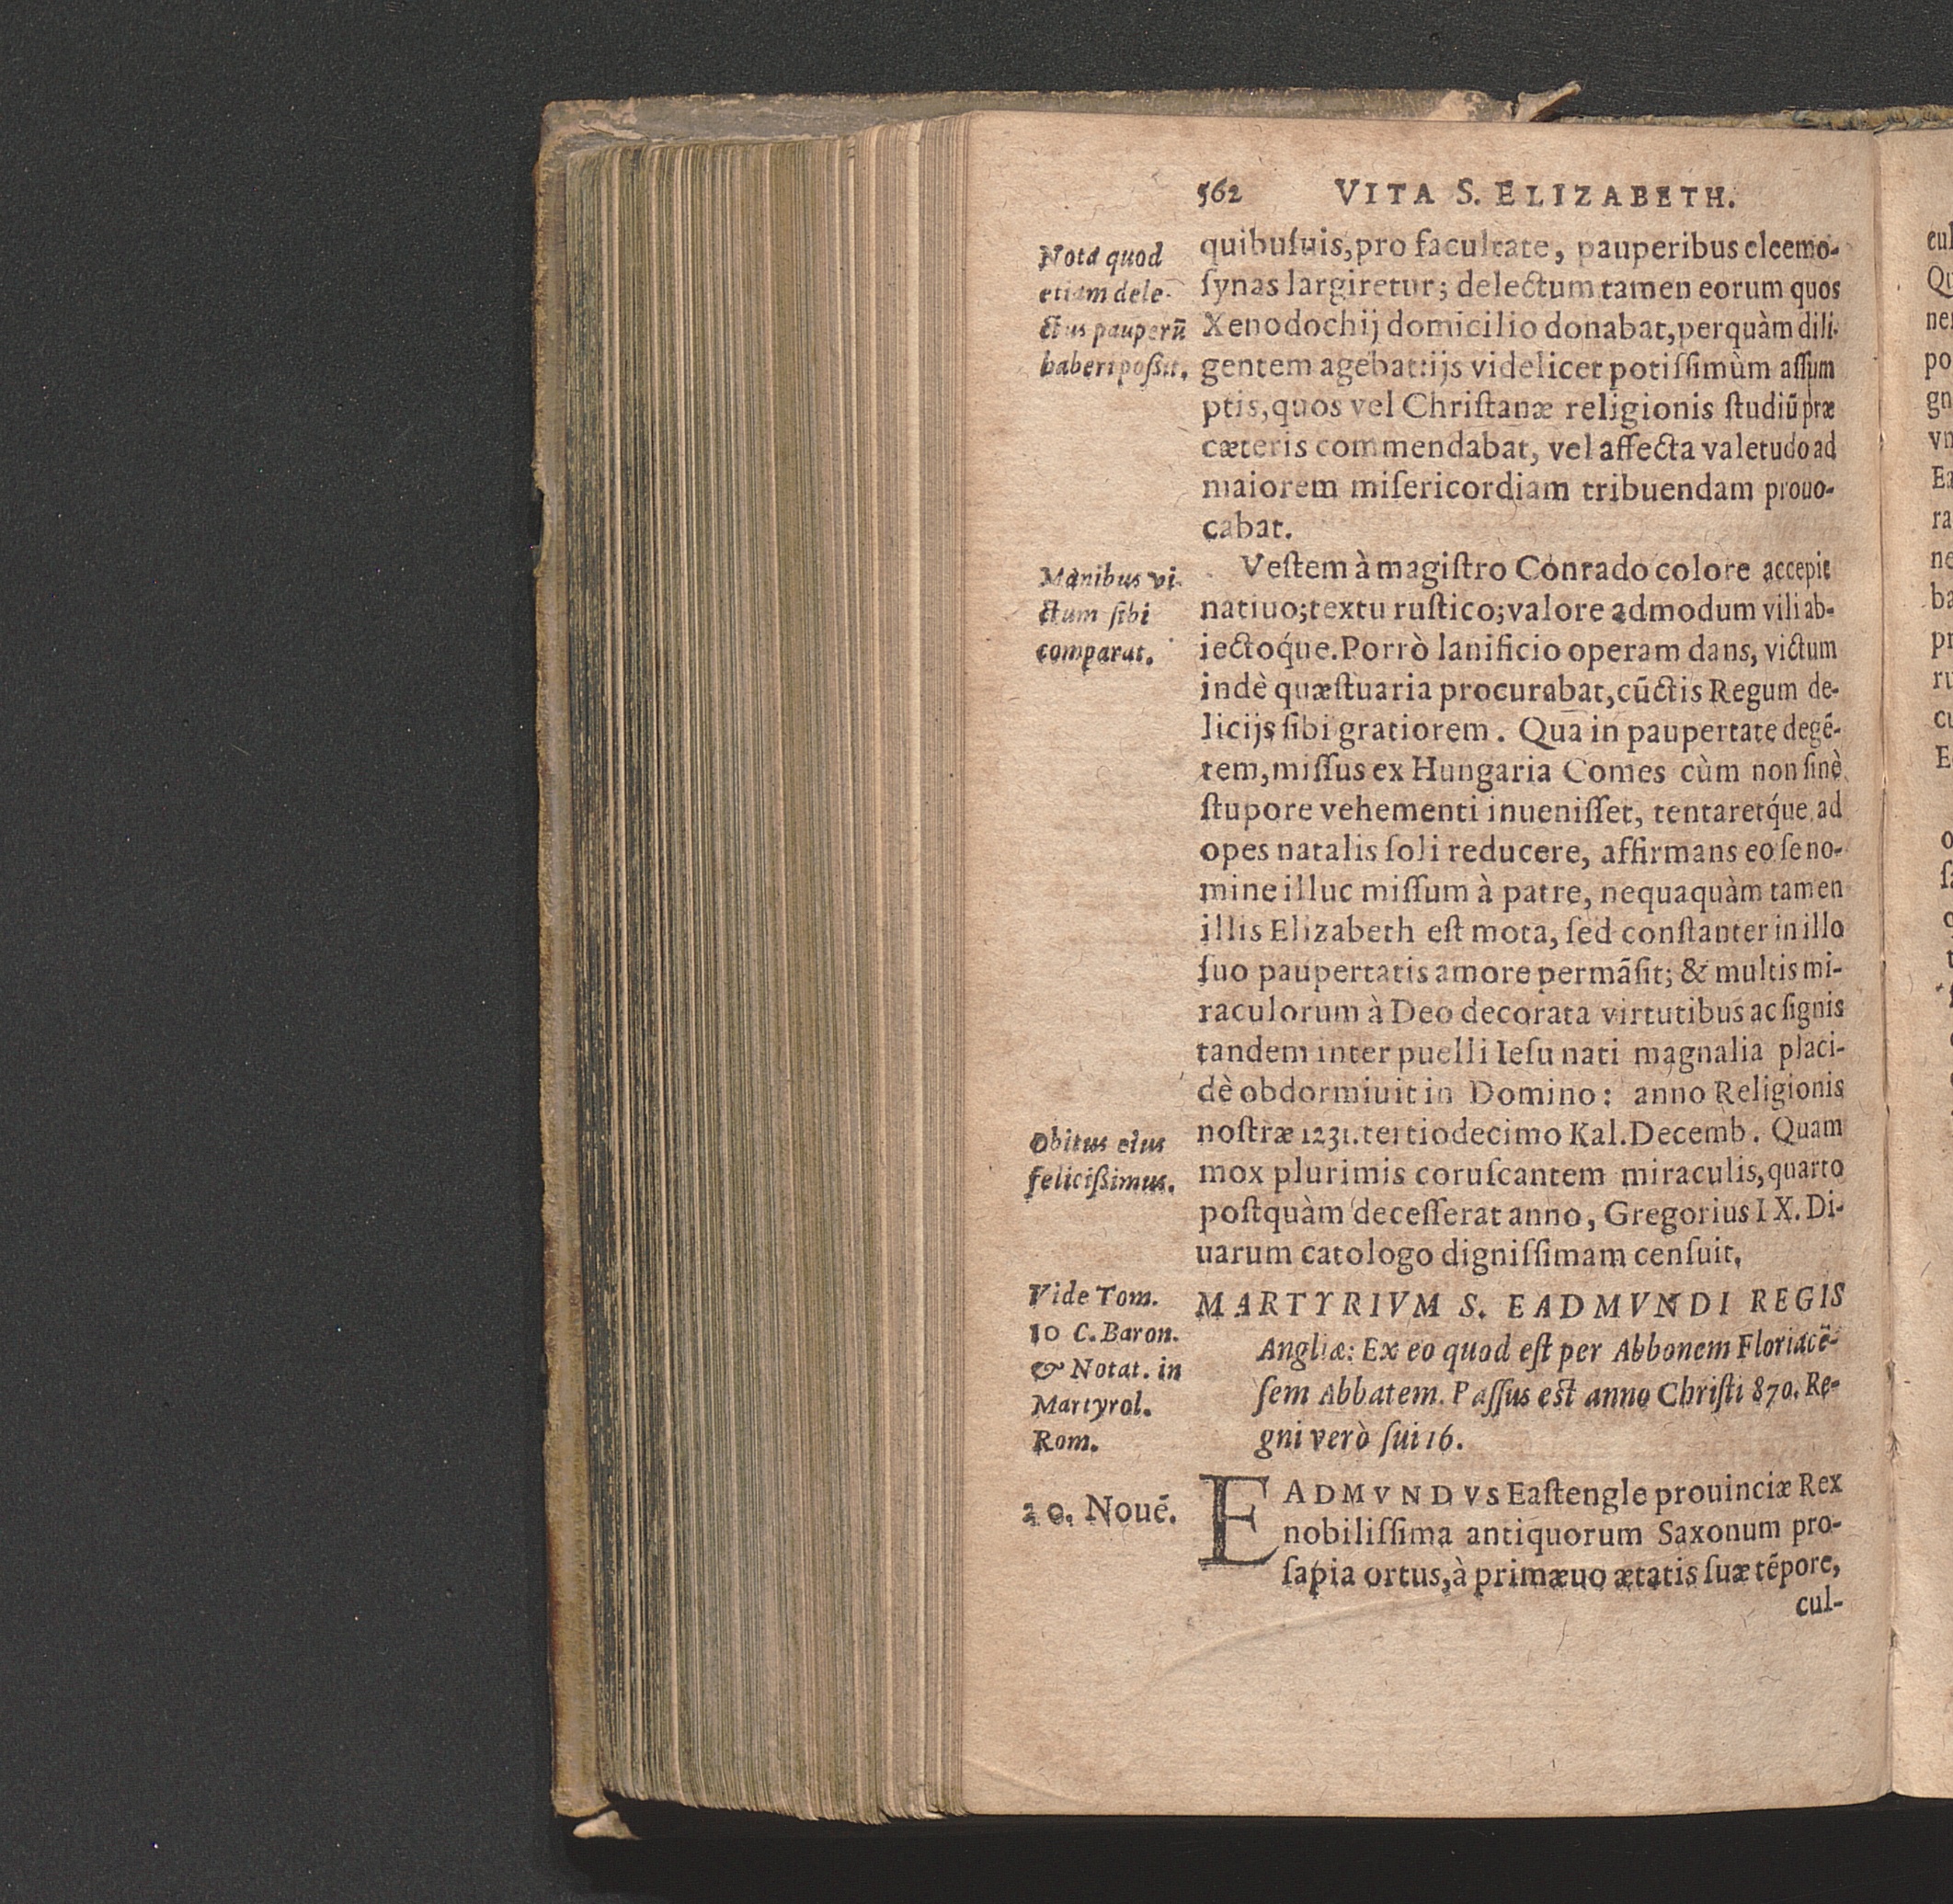 562 VITA S. ELIZABETH.
Nota quod
etiam dele-
ctus pauperū
haberi poßit.
quibuſuis, pro facultate, pauperibus eleemo-
ſynas largiretur; delectum tamen eorum quos
Xenodochij domicilio donabat, perquàm dili-
gentem agebat: ijs videlicet potiſſimùm aſſum
ptis, quos vel Chriſtanæ religionis ſtudiū præ
cæteris commendabat, vel affecta valetudo ad
maiorem miſericordiam tribuendam prouo-
cabat.
Manibus vi-
ctum ſibi
comparat.
Veſtem à magiſtro Conrado colore accepit
natiuo; textu ruſtico; valore admodum vili ab-
iectoq́ue. Porrò lanificio operam dans, victum
indè quæſtuaria procurabat, cūctis Regum de-
licijs ſibi gratiorem. Qua in paupertate degē-
tem, miſſus ex Hungaria Comes cùm non ſinè
ſtupore vehementi inueniſſet, tentaretq́ue ad
opes natalis ſoli reducere, affirmans eo ſe no-
mine illuc miſſum à patre, nequaquàm tamen
illis Elizabeth eſt mota, ſed conſtanter in illo
ſuo paupertatis amore permāſit; & multis mi-
raculorum à Deo decorata virtutibus ac ſignis
tandem inter puelli Ieſu nati magnalia placi-
dè obdormiuit in Domino: anno Religionis
noſtræ 1231. tertiodecimo Kal. Decemb. Quam
mox plurimis coruſcantem miraculis, quarto
poſtquàm deceſſerat anno, Gregorius IX. Di-
uarum catologo digniſſimam cenſuit,
Obitus eius
feliciſsimus.
Vide Tom.
10 C. Baron.
& Notat. in
Martyrol.
Rom.
MARTYRIVM S. EADMVNDI REGIS
Angliæ: Ex eo quod eſt per Abbonem Floriacē-
ſem Abbatem. Paſſus eſt anno Chriſti 870. Re-
gni verò ſui 16.
20. Nouē.
EADMVNDVS Eaſtengle prouinciæ Rex
nobiliſſima antiquorum Saxonum pro-
ſapia ortus, à primæuo ætatis ſuæ tēpore,
cul-